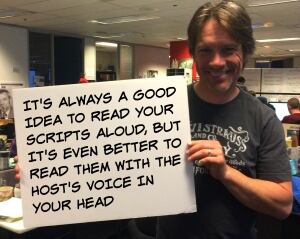 IT'S ALWAYS A GOOD
IDEA TO READ YOUR
SCRIPTS ALOUD, BUT
IT'S EVEN BETTER TO
READ THEM WITH THE
HOST'S VOICE IN
YOUR HEAD